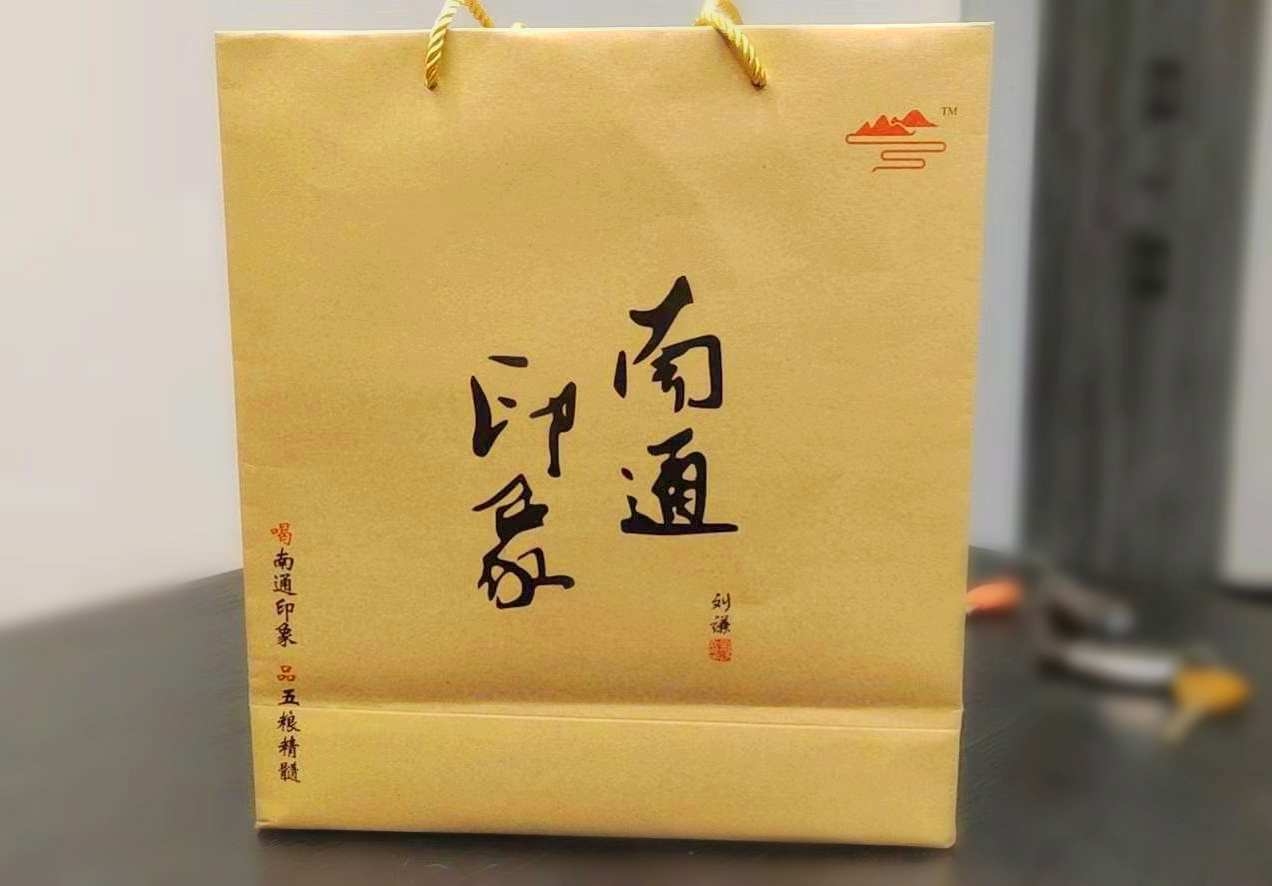 南通
印象
刘谦
喝南通印象 品五粮精髓
TM